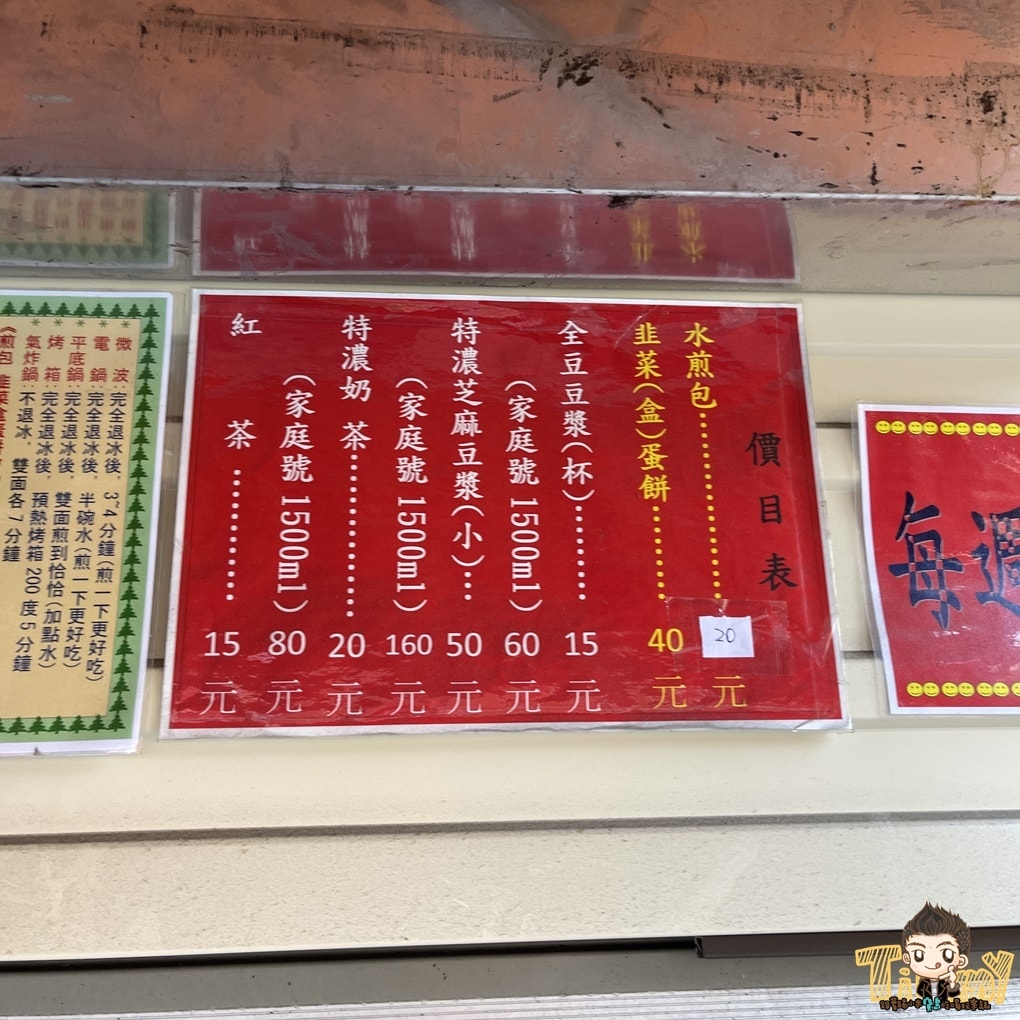 價目表
水煎包 20元
韭菜(盒)蛋餅 40元
全豆豆漿(杯) 15元
(家庭號 1500ml) 60元
特濃芝麻豆漿(小) 50元
(家庭號 1500ml) 160元
特濃奶茶 20元
(家庭號 1500ml) 80元
紅茶 15元
微波:完全退冰後,3~4分鐘(煎一下更好吃)
電鍋:完全退冰後,半碗水(煎一下更好吃)
平底鍋:完全退冰後,雙面煎到恰恰(加點水)
烤箱:完全退冰後,預熱烤箱200度5分鐘
氣炸鍋:不退冰,雙面各7分鐘
每週
Timmy